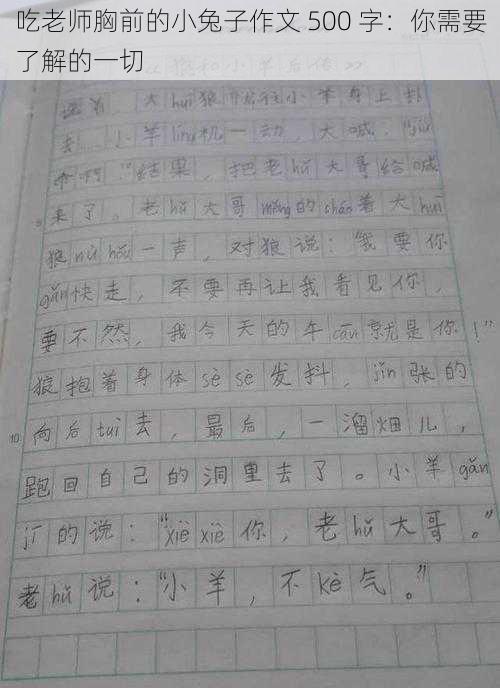 吃老师胸前的小兔子作文 500 字：你需要
了解的一切
《狼和小羊后传》
说着，大huī狼就往小羊身上扑
去。小羊líng机一动，大喊："jiù
命啊！"结果，把老hǔ大哥给喊
来了。老hǔ大哥měng的cháo着大huī
狼nù hǒu一声，对狼说："我要你
gǎn快走，不要再让我看见你，
要不然，我今天的午cān就是你！"
狼抱着身体sè sè发抖，jǐn张的
向后tuì去，最后，一溜烟儿，
跑回自己的洞里去了。小羊gǎn
jī的说："xiè xiè你，老hǔ大哥。"
老hǔ说："小羊，不kè气。"
5
10